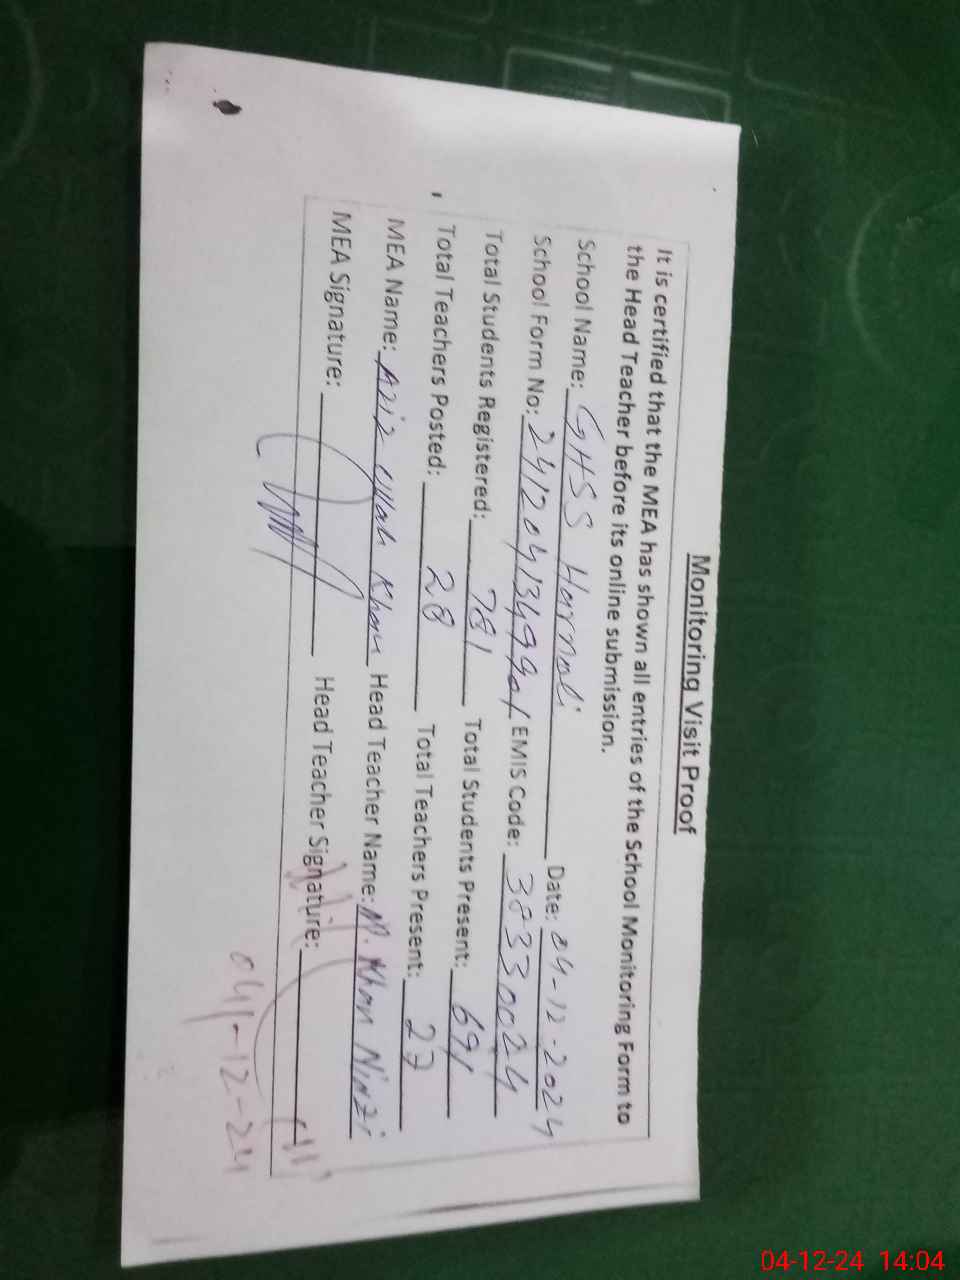 Monitoring Visit Proof
It is certified that the MEA has shown all entries of the School Monitoring Form to
the Head Teacher before its online submission.
School Name: GHSS Harnoli Date: 04-12-2024
School Form No: EMIS Code: 38330024
Total Students Registered: 781 Total Students Present: 691
Total Teachers Posted: 28 Total Teachers Present: 27
MEA Name: Aziz Ullah Khan Head Teacher Name: M. Khan
MEA Signature: Head Teacher Signature:
04-12-24
04-12-24 14:04